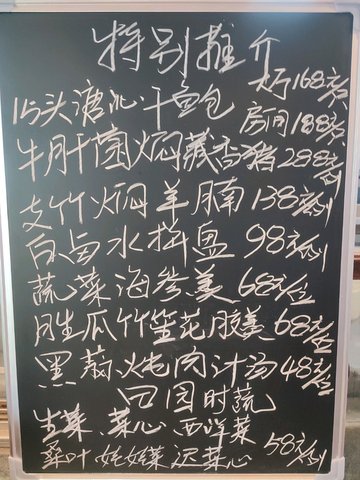 特别推介
大厅168元/只
15头溏心干鲍 房间188元/只
牛肝菌焖藏香猪288元/例
支竹焖羊腩138元/例
白卤水拼盘98元/例
蔬菜海参羹68元/位
胜瓜竹笙花胶羹68元/位
黑蒜炖肉汁汤48元/位
田园时蔬
生菜 菜心 西洋菜
桑叶 菜心 58元/例